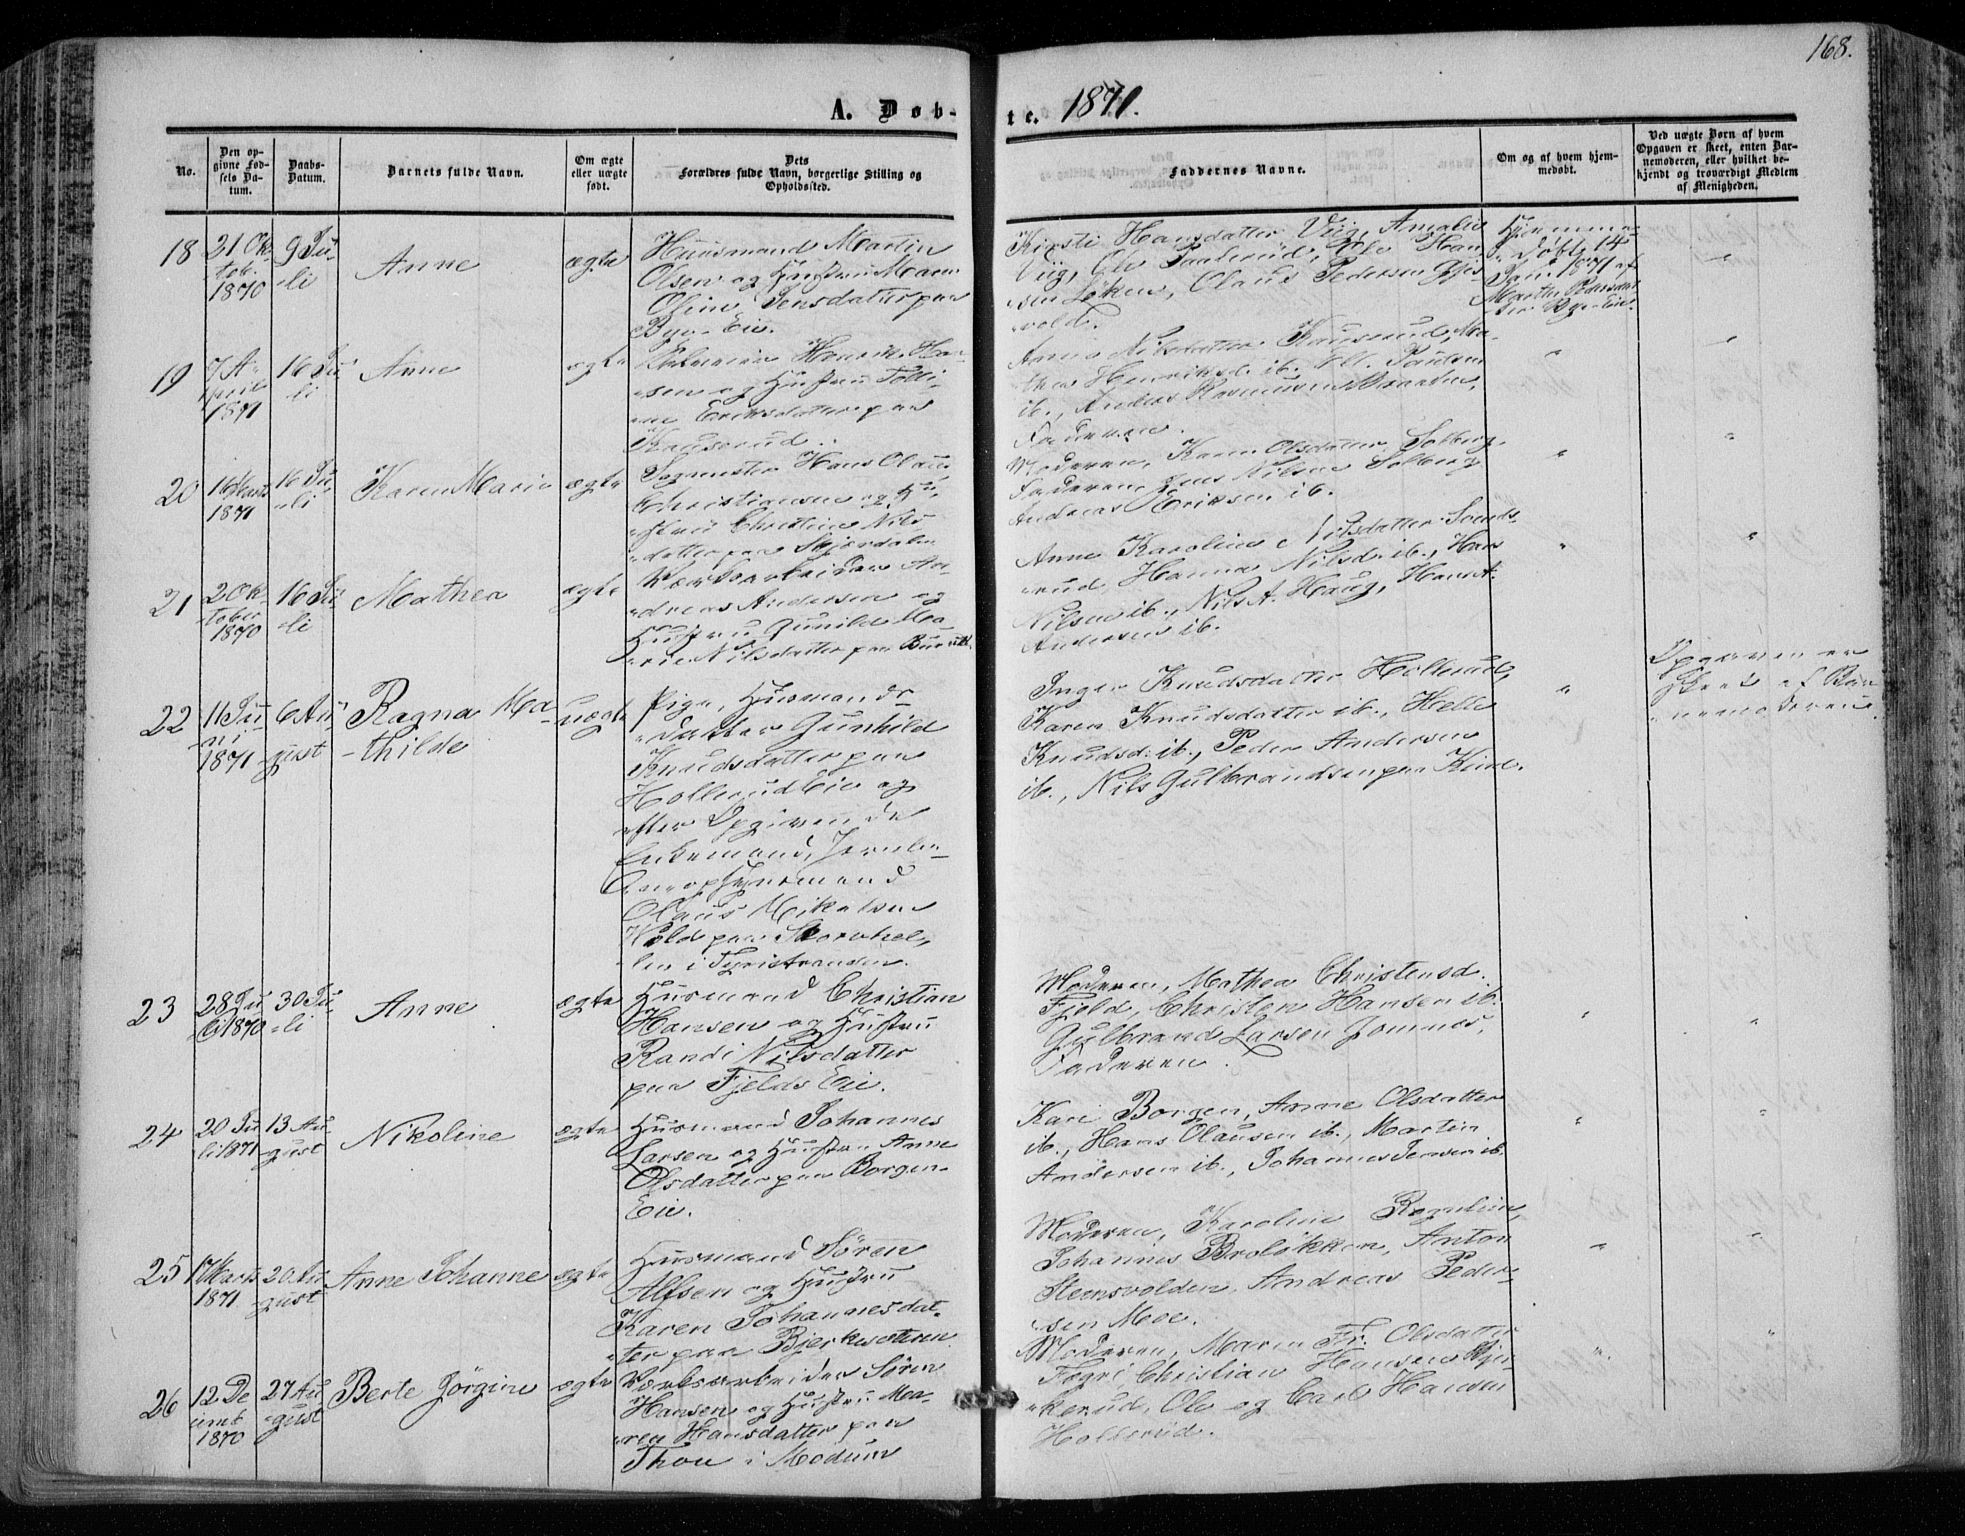 168.
A. Døb-
te. 1871.
No.
Den op-
givne Fød-
sels Da-
tum.
Daabs-
Datum.
Barnets fulde Navn.
Om ægte
eller uægte
født.
Dets
Forældres fulde Navn, borgerlige Stilling og
Opholdssted.
Faddernes Navne.
Om og af hvem hjem-
medøbt.
Ved uægte Born af hvem
Opgaven er skeet, enten Bar-
nemoderen, eller hvilket be-
kjendt og troværdigt Medlem
af Menigheden.
18
21 Ok-
tob.
1870
9 Ju-
li
Anne
ægte
Huusmand Martin
Olsen og Hustru Maren
Oline Jensdatter paa
Bye-Eie.
Kirsti Hansdatter Viig, Amalie
Viig, Ole Paalerud, Ole Han-
sen Løken, Claus Pedersen Gjis-
vold.
Hjemme-
døbt 14
Jan. 1871 af
Marthe Pedersdat-
ter Bye-Eie.
19
7 A-
pril
1871
16 Ju-
li
Anne
ægte
Henrik Han-
sen og Hustru
Eriksdatter paa
Kausrud.
Anne Nilsdatter Kausrud, Ma-
thea Henriksd. ib. Paulsen
ib., Anders Rasmussen
Faderen.
20
16 Marts
1871
16 Ju-
li
Karen Marie
ægte
Sagmester Hans Olaus
Christiansen og Hu-
stru Christine Nils-
datter paa Skjerdalen
Moderen, Karen Olsdatter Solberg,
Faderen, Jens Nilsen Solberg
Andreas Eriksen ib.
21
2 Ok-
tober
1870
16 Ju-
li
Mathea
ægte
Værksarbeider An-
dreas Andersen og
Hustru Gunild Ma-
rie Nilsdatter paa
Anne Karoline Nilsdatter Sonds-
rud Hanna Nilsd. ib., Hans
Nilsen ib., Nils A. Haug, Hans A.
Andersen ib.
22
11 Ju-
ni
1871
6 Au-
gust
Ragna Ma-
thilde
uægte
Pige, Husmands-
datter Gunhild
Knudsdatter paa
Hollerud Eie og
efter Opgivende
Enkemand, Jernba-
neopsynsmand
Olaus Mikalsen
Hold paa Skorvhel-
len i Tyristranden.
Inger Knudsdatter Hollerud,
Karen Knudsdatter ib., Helle
Knudsd. ib., Peder Andersen
ib., Nils Gulbrandsen paa Kind.
Opgaven er
skeet af Bar-
nemoderen.
23
28 Ju-
li 1870
30 Ju-
li
Anne
ægte
Husmand Christian
Hansen og Hustru
Randi Nilsdatter
paa Fjelds Eie.
Moderen, Mathea Christensd.
Fjeld, Christen Hansen ib.
Gulbrand Larsen Jonnes,
Faderen.
24
20 Ju-
li 1871
13 Au-
gust
Nikoline
ægte
Husmand Johannes
Larsen og Hustru Anne
Olsdatter paa Borgen-
Eie.
Kari Borgen, Anne Olsdatter
ib., Hans Olausen ib., Martin
Andersen ib., Johannes Jensen ib.
25
17 Marts
1871
20 Au-
gust
Anne Johanne
ægte
Husmand Søren
Alfsen og Hustru
Karen Johannesdat-
ter paa Bjerkesæteren
Moderen, Karoline
Johannes Broløkken, Anton
Steensvolden, Andreas Peder-
sen Moe.
26
12 De-
cemb
1870
27 Au-
gust
Berte Jørgine
ægte
Værksarbeider Søren
Hansen og Hustru Ma-
ren Hansdatter paa
Thou i Modum
Moderen, Maren Fr. Olsdatter
Christian Hansen Bjer-
kerud, Ole og Carl Hansen
Hollerud.